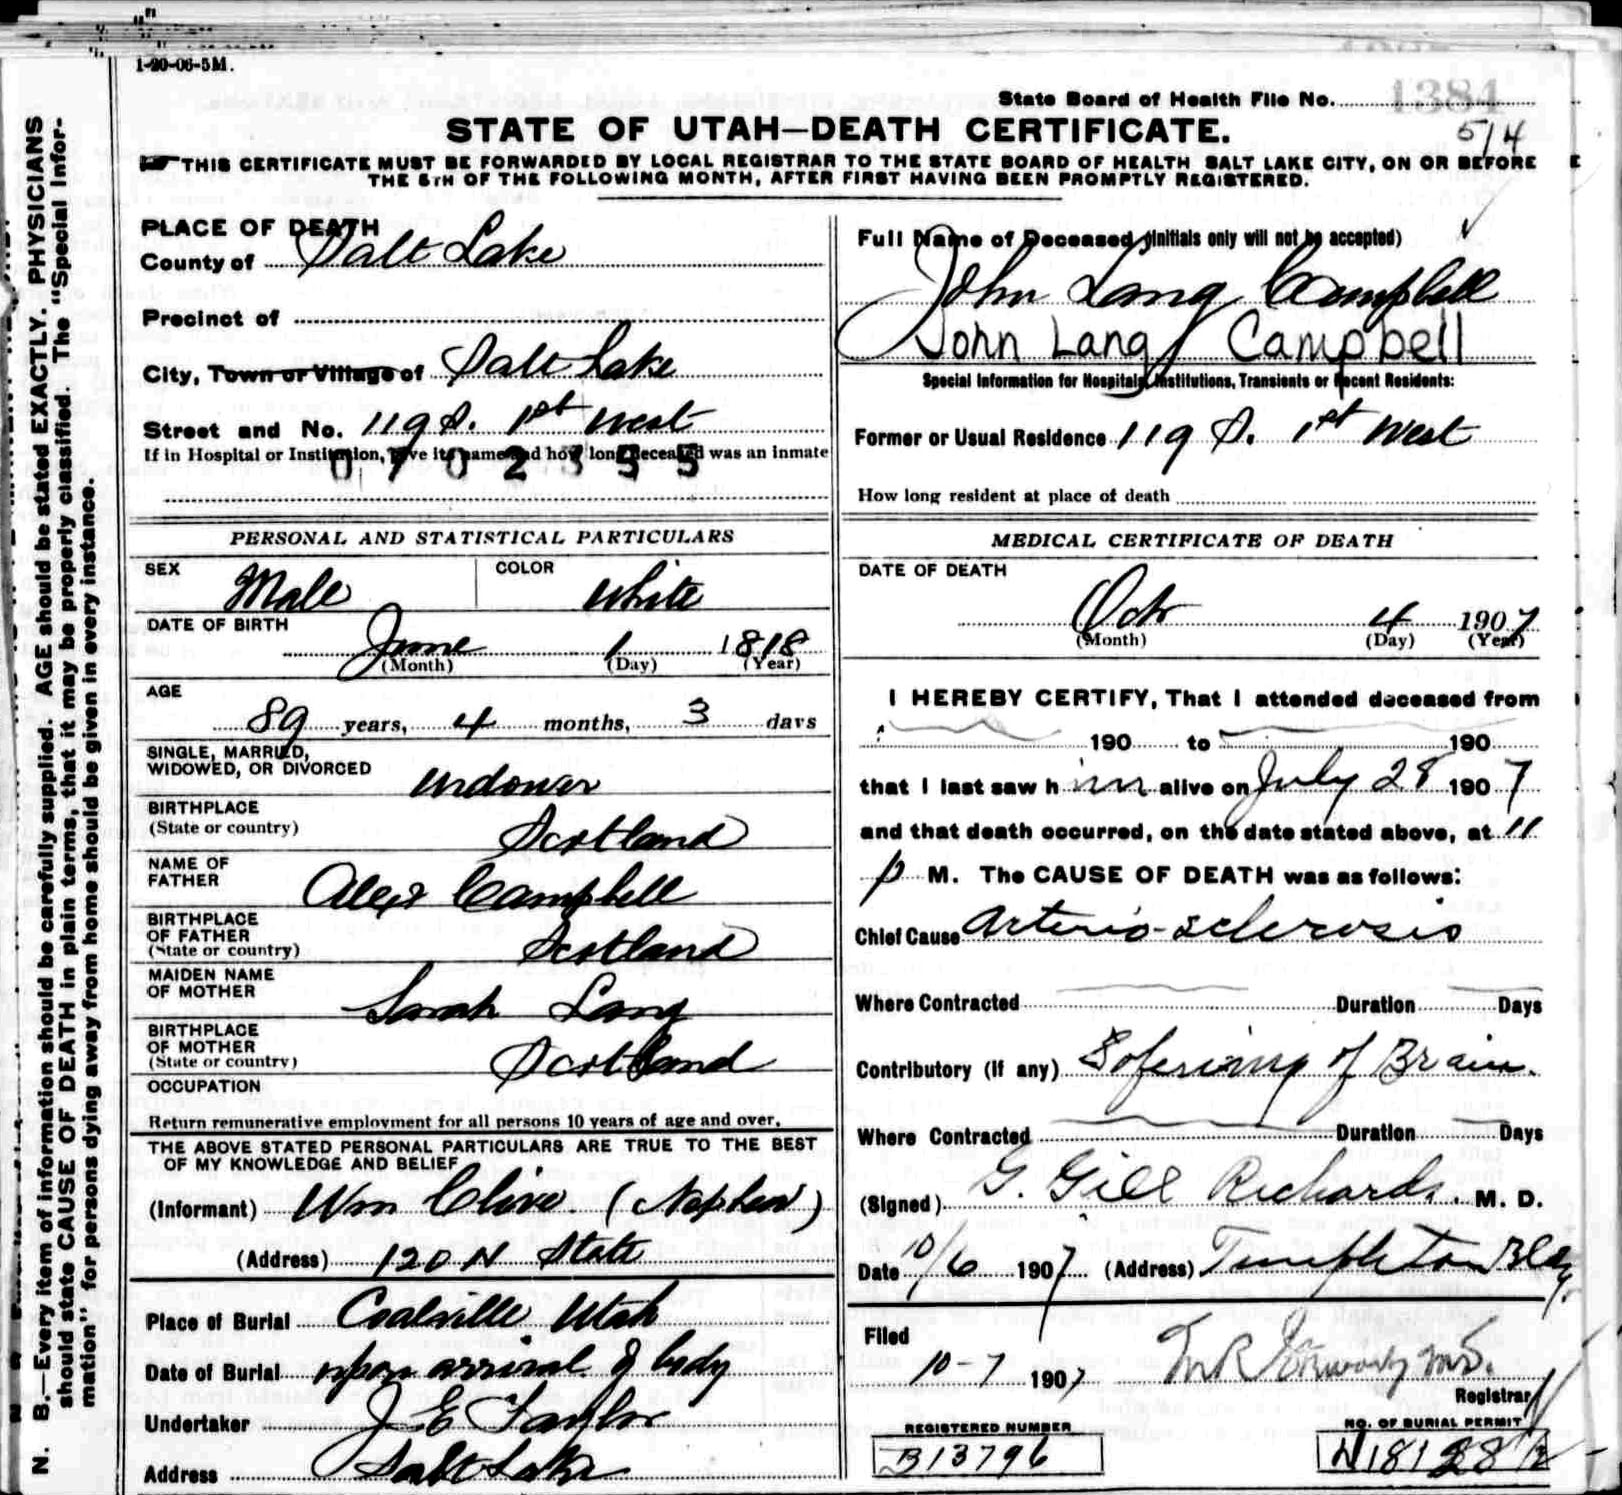 1-20-06-5M.
State Board of Health File No. 1384
STATE OF UTAH—DEATH CERTIFICATE. 514
THIS CERTIFICATE MUST BE FORWARDED BY LOCAL REGISTRAR TO THE STATE BOARD OF HEALTH SALT LAKE CITY, ON OR BEFORE
THE 5TH OF THE FOLLOWING MONTH, AFTER FIRST HAVING BEEN PROMPTLY REGISTERED.
N. B.—Every item of information should be carefully supplied. AGE should be stated EXACTLY. PHYSICIANS
should state CAUSE OF DEATH in plain terms, that it may be properly classified. The "Special Infor-
mation" for persons dying away from home should be given in every instance.
PLACE OF DEATH
County of Salt Lake
Precinct of
City, Town or Village of Salt Lake
Street and No. 119 S. 1st West
If in Hospital or Institution, give its name and how long deceased was an inmate
0702355
Full Name of Deceased (initials only will not be accepted)
John Lang Campbell
John Lang Campbell
Special Information for Hospitals, Institutions, Transients or Recent Residents:
Former or Usual Residence 119 S. 1st West
How long resident at place of death
PERSONAL AND STATISTICAL PARTICULARS
SEX Male COLOR White
DATE OF BIRTH
June 1 1818
(Month) (Day) (Year)
AGE
89 years, 4 months, 3 days
SINGLE, MARRIED,
WIDOWED, OR DIVORCED Widower
BIRTHPLACE
(State or country) Scotland
NAME OF
FATHER Alex Campbell
BIRTHPLACE
OF FATHER
(State or country) Scotland
MAIDEN NAME
OF MOTHER Sarah Lang
BIRTHPLACE
OF MOTHER
(State or country) Scotland
OCCUPATION
Return remunerative employment for all persons 10 years of age and over.
THE ABOVE STATED PERSONAL PARTICULARS ARE TRUE TO THE BEST
OF MY KNOWLEDGE AND BELIEF
(Informant) Wm Clive. (Nephew)
(Address) 120 N State
Place of Burial Coalville Utah
Date of Burial upon arrival of body
Undertaker J E Taylor
Address Salt Lake
MEDICAL CERTIFICATE OF DEATH
DATE OF DEATH
Oct 4 1907
(Month) (Day) (Year)
I HEREBY CERTIFY, That I attended deceased from
190 to 190
that I last saw him alive on July 28 1907
and that death occurred, on the date stated above, at 11
p M. The CAUSE OF DEATH was as follows:
Chief Cause Arterio-sclerosis
Where Contracted Duration Days
Contributory (If any) Sofening of Brain.
Where Contracted Duration Days
(Signed) G. Gill Richards. M. D.
Date 10/6 1907 (Address) Templeton Bldg.
Filed
10-7 1907
Registrar
REGISTERED NUMBER
B13796
NO. OF BURIAL PERMIT